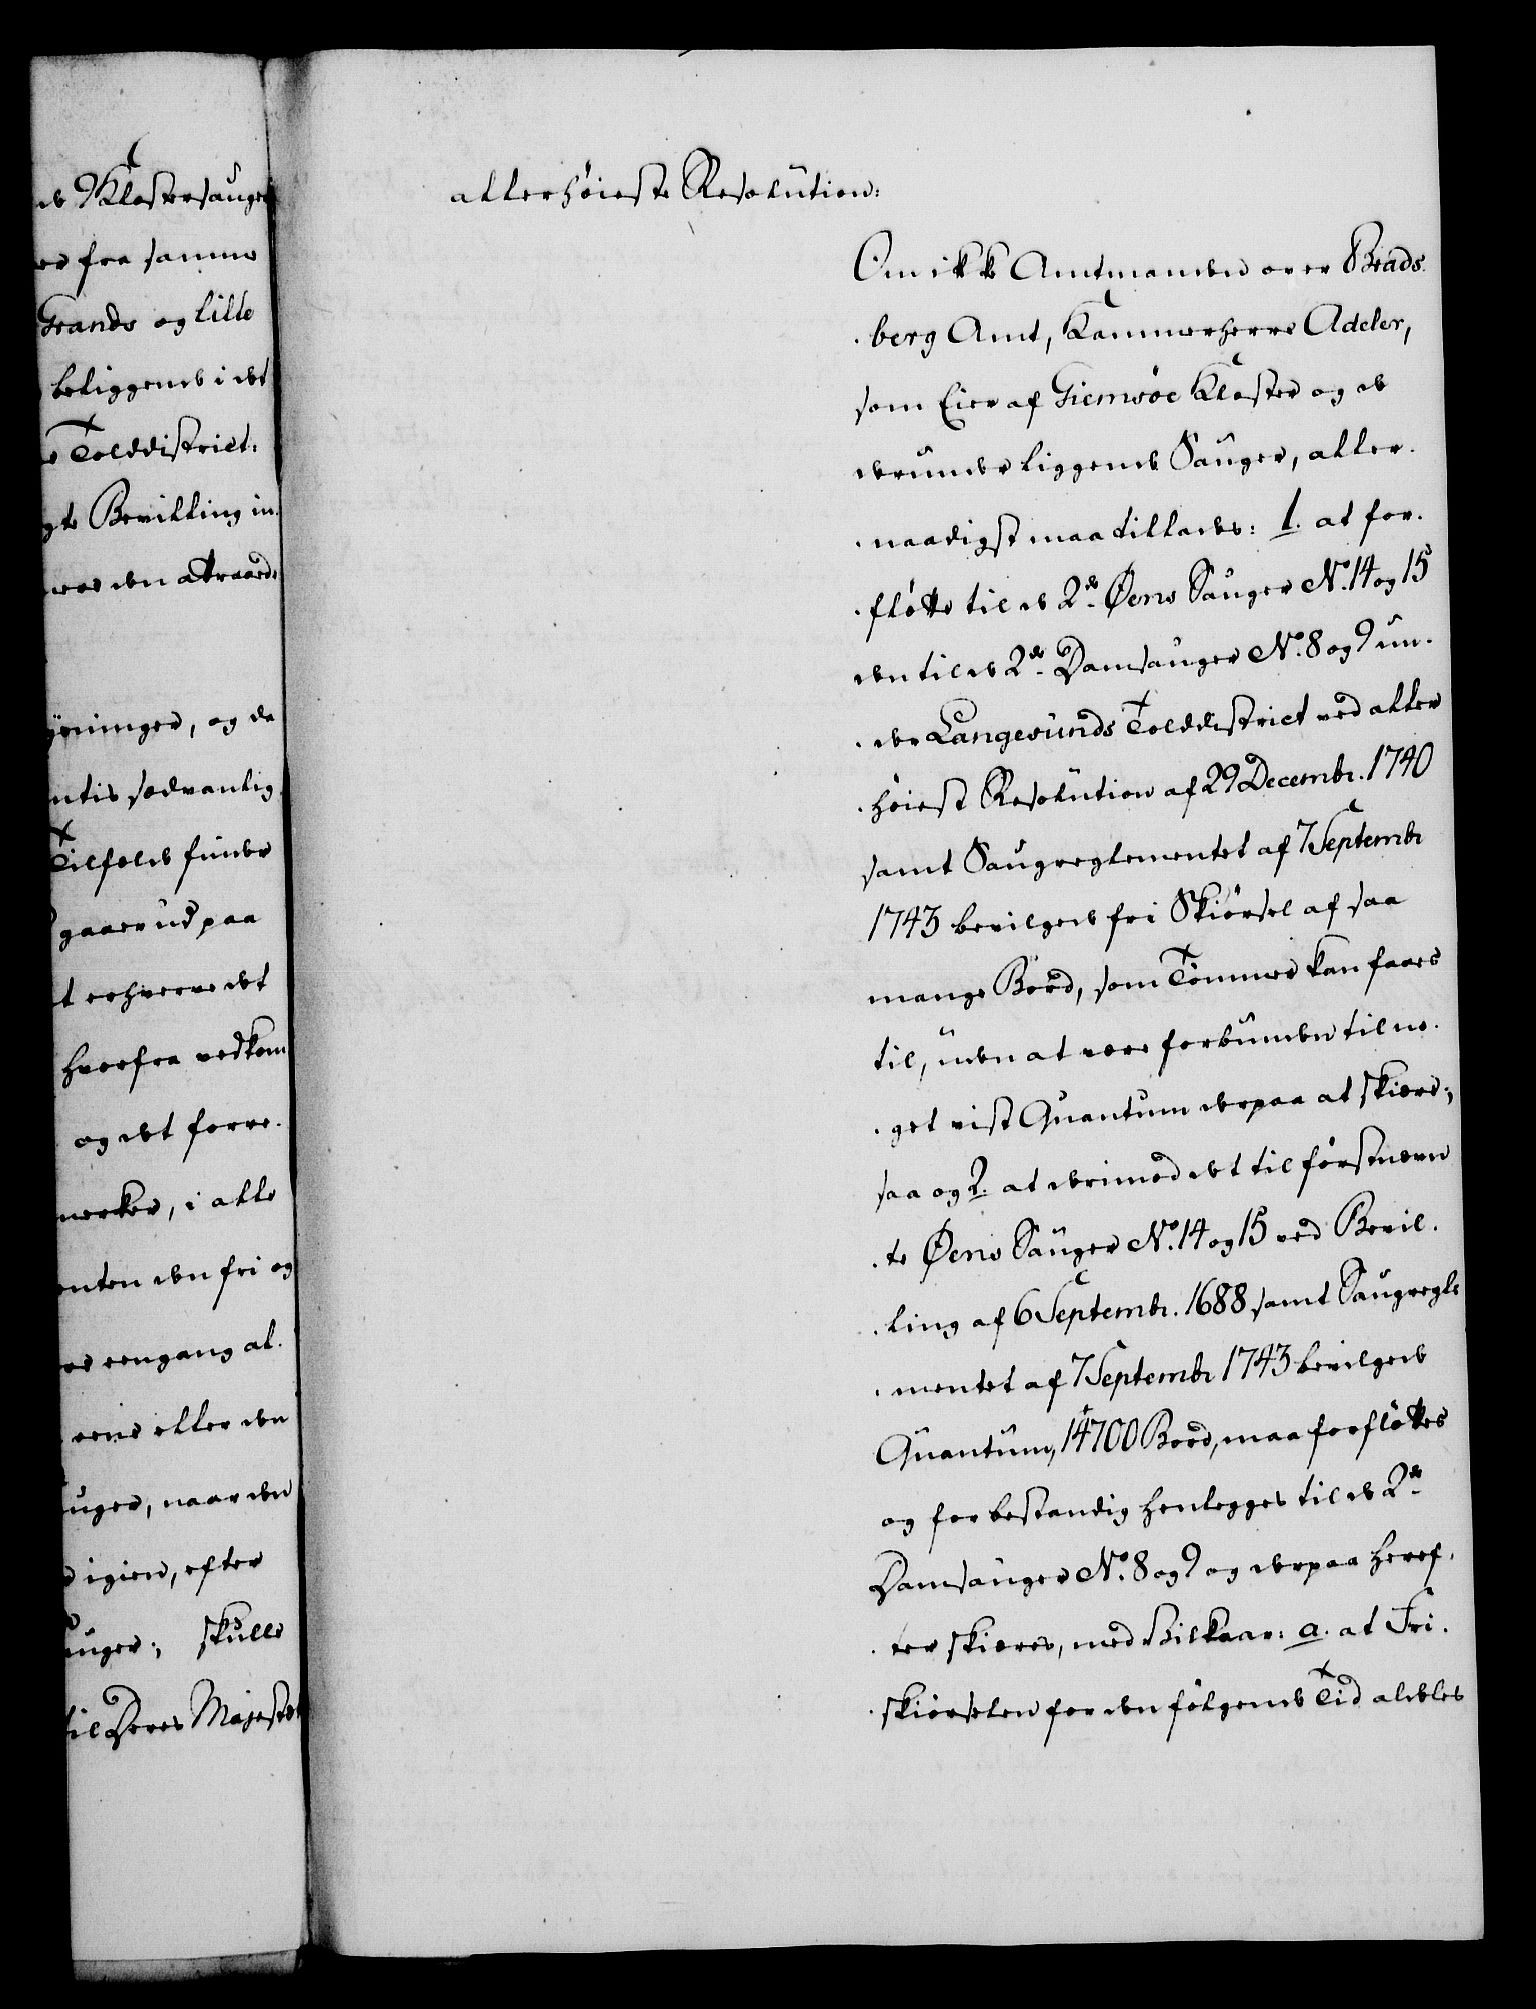 de 9 Klostersauger
es fra samme
Strands og lille
beliggende i det
Tolddistrict:
gte Bevilling in-
den attraaede
ninger, og da
ntis sedvanlig
Tilfelde finder
gaaer ud paa
t erhverve det
hvorfra vedkom
og det forre-
merker, i alle
enten den fri og
eengang al-
eene eller den
uger, naar den
igien, efter
auger; skulle
til Deres Majestet
allerhöieste Resolution:
Om ikke Amtmanden over Brads-
berg Amt, Kammerherre Adeler,
som Eier af Giemsöe Kloster og de
derunder liggende Sauger, aller-
naadigst maa tillades: 1. at for-
flötte til de 2de Öens Sauger No. 14 og 15
den til de 2de Damsauger No. 8 og 9 un-
der Langesunds Tolddistrict ved aller
höiest Resolution af 29 Decembr. 1740
samt Saugreglementet af 7 Septembr
1743 bevilgede fri Skiörsel af saa
mange Bord, som Tömmer kan faaes
til, uden at være forbunden til no-
get vist Quantum derpaa at skiære;
saa og 2. at derimod det til förstnevn
te Öens Sauger No. 14 og 15 ved Bevil-
ling af 6 Septembr. 1688 samt Saugregle
mentet af 7 Septembr 1743 bevilgede
Quantum, 14700 Bord, maa forflöttes
og for bestandig henlegges til de 2de
Damsauger No. 8 og 9 og derpaa heref-
ter skieres, med Vilkaar: a. at Fri-
skiörselen for den fölgende Tid aldeles